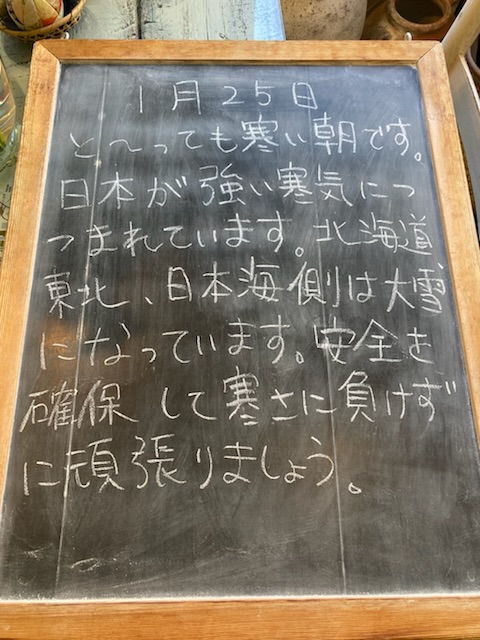 1月25日
と〜っても寒い朝です。
日本が強い寒気につ
つまれています。北海道、
東北、日本海側は大雪
になっています。安全を
確保して寒さに負けず
に頑張りましょう。